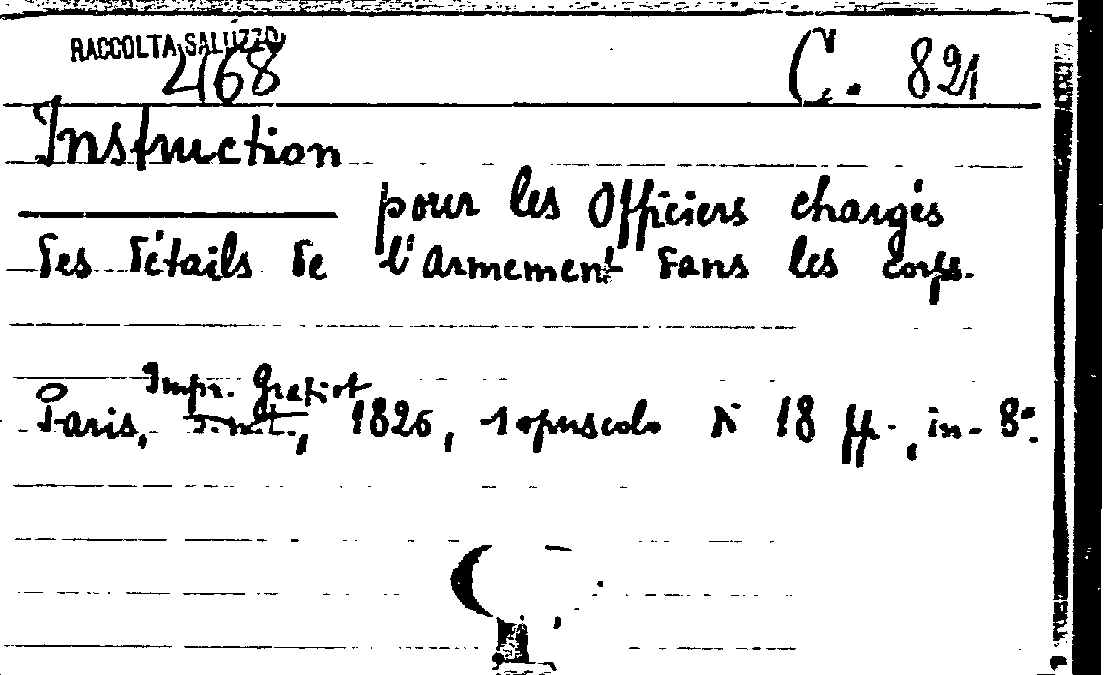 RACCOLTA SALUZZO
4168 C. 821
Instruction
pour les Officiers chargés
des détails de l'Armement dans les corps.
Impr. Gratiot
Paris, s.n.t., 1826, 1 opuscolo di 18 pp., in-8°.